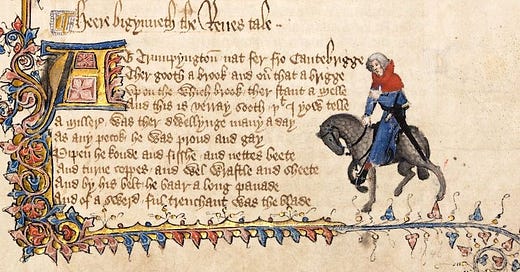 Heere bigynneth the Reues tale
At Trumpyngton nat fer fro Cantebrigge
Ther gooth a brook and ouer that a brigge
Vpon the which brook ther stant a melle
And this is verray sooth þt I yow telle
A millere was ther dwellynge many a day
As any pecok he was proud and gay
Pipen he koude and fisshe and nettes beete
And turne coppes and wel wrastle and sheete
And by his belt he baar a long panade
And of a swerd ful trenchant was the blade